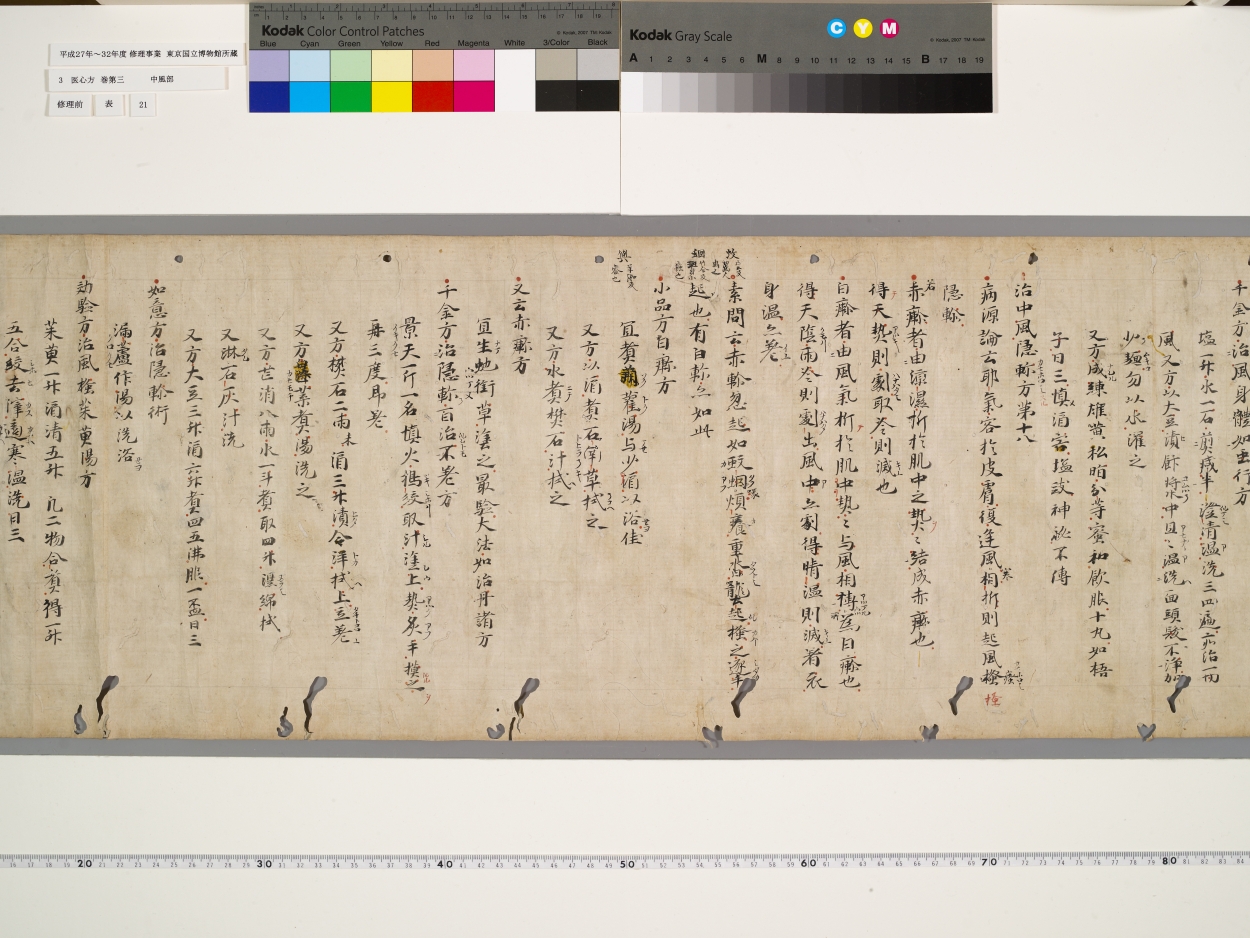 平成27年～32年度 修理事業 東京国立博物館所蔵
3 医心方 巻第三 中風部
修理前 表 21
Kodak Color Control Patches
Blue Cyan Green Yellow Red Magenta White 3/Color Black
Kodak Gray Scale
C Y M
A 1 2 3 4 5 6 M 8 9 10 11 12 13 14 15 B 17 18 19
千金方治風身體如虫行方
塩一升水一石煎減半澄清温洗三四遍亦治一切
風又方以大豆漬飰漿水中旦々温洗面頭髮不浄加
少麺勿以水濯之
又方成練雄黄松脂分等蜜和飲服十丸如梧
子日三慎酒宍塩豉神秘不傳
治中風隠軫方第十八
病源論云耶氣客於皮膚復逢風相折則起風瘙
隠軫
赤㾦者由凉濕折於肌中之熱々結成赤㾦也
得天熱則劇取冷則滅也
白㾦者由風氣折於肌中熱々与風相搏為白㾦也
得天陰雨冷則劇出風中亦劇得晴温則滅着衣
身温亦差
素問云赤軫忽起如蚊蚋煩癢重沓壟起搔之逐手
起也有白軫亦如此
小品方白㾦方
宜煮蒴藋湯与少酒以浴佳
又方以酒煮石南草拭之
又方水煮樊石汁拭之
又云赤㾦方
宜生虵銜草塗之最驗大法如治丹諸方
千金方治隠軫百治不差方
景天一斤一名慎火搗絞取汁塗上熱炙手摸之
再三度耶差
又方樊石二兩末酒三升漬令洋拭上立差
又方蚕葉煮湯洗之
又方芒消八兩水一斗煮取四升浸綿拭
又淋石灰汁洗
又方大豆三升酒六升煮四五沸服一盃日三
如意方治隠軫術
漏蘆作湯以洗浴
効驗方治風搔茱萸湯方
茱萸一升酒清五升 凡二物合煮得一升
五合絞去滓適寒温洗日三
20 30 40 50 60 70 80